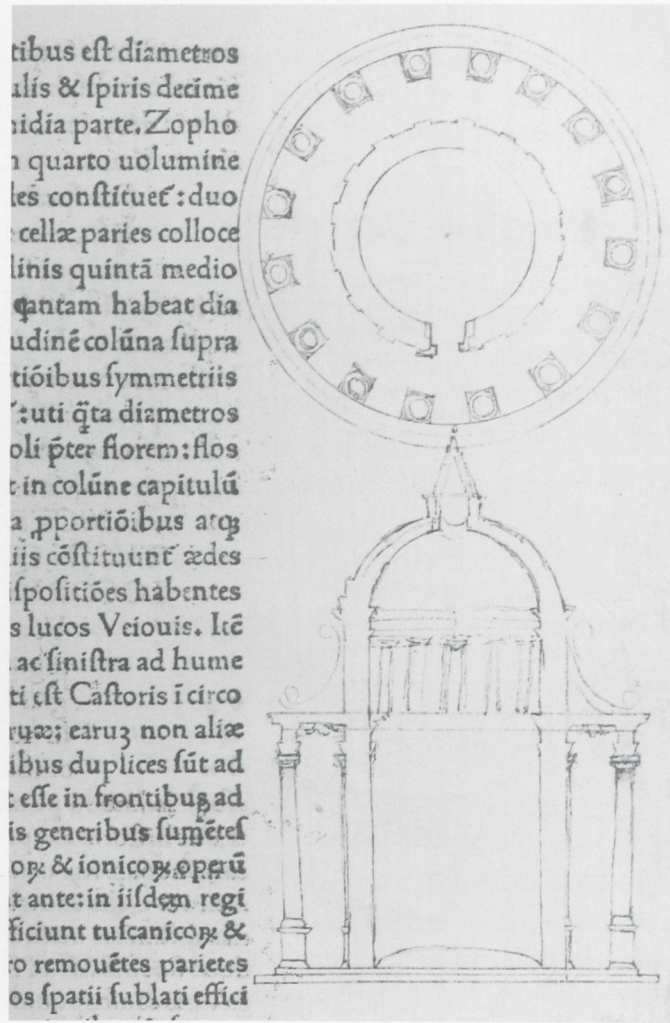 tibus eſt díametros
ulis & ſpiris decime
nidia parte. Zopho
n quarto uolumine
les conſtituet᷑: duo
cellæ paries colloce
linis quintã medio
quantam habeat dia
udinē colũna ſupra
tiõibus ſymmetriis
᷑: uti q̃ta diametros
oli p̃ter florem: flos
t in colũne capitulũ
a ꝓportiõibus atqꝫ
iis cõſtituunt᷑ ædes
iſpoſitiões habentes
s lucos Veiouis. Itē
ac ſiniſtra ad hume
ti eſt Caſtoris ī circo
earuꝫ non aliæ
ibus duplices ſũt ad
t eſſe in frontibus ad
is generibus ſumētes
oꝝ & ionicoꝝ operũ
t ante: in iiſdem regi
fficiunt tuſcanicoꝝ &
ro remouētes parietes
os ſpatii ſublati effici